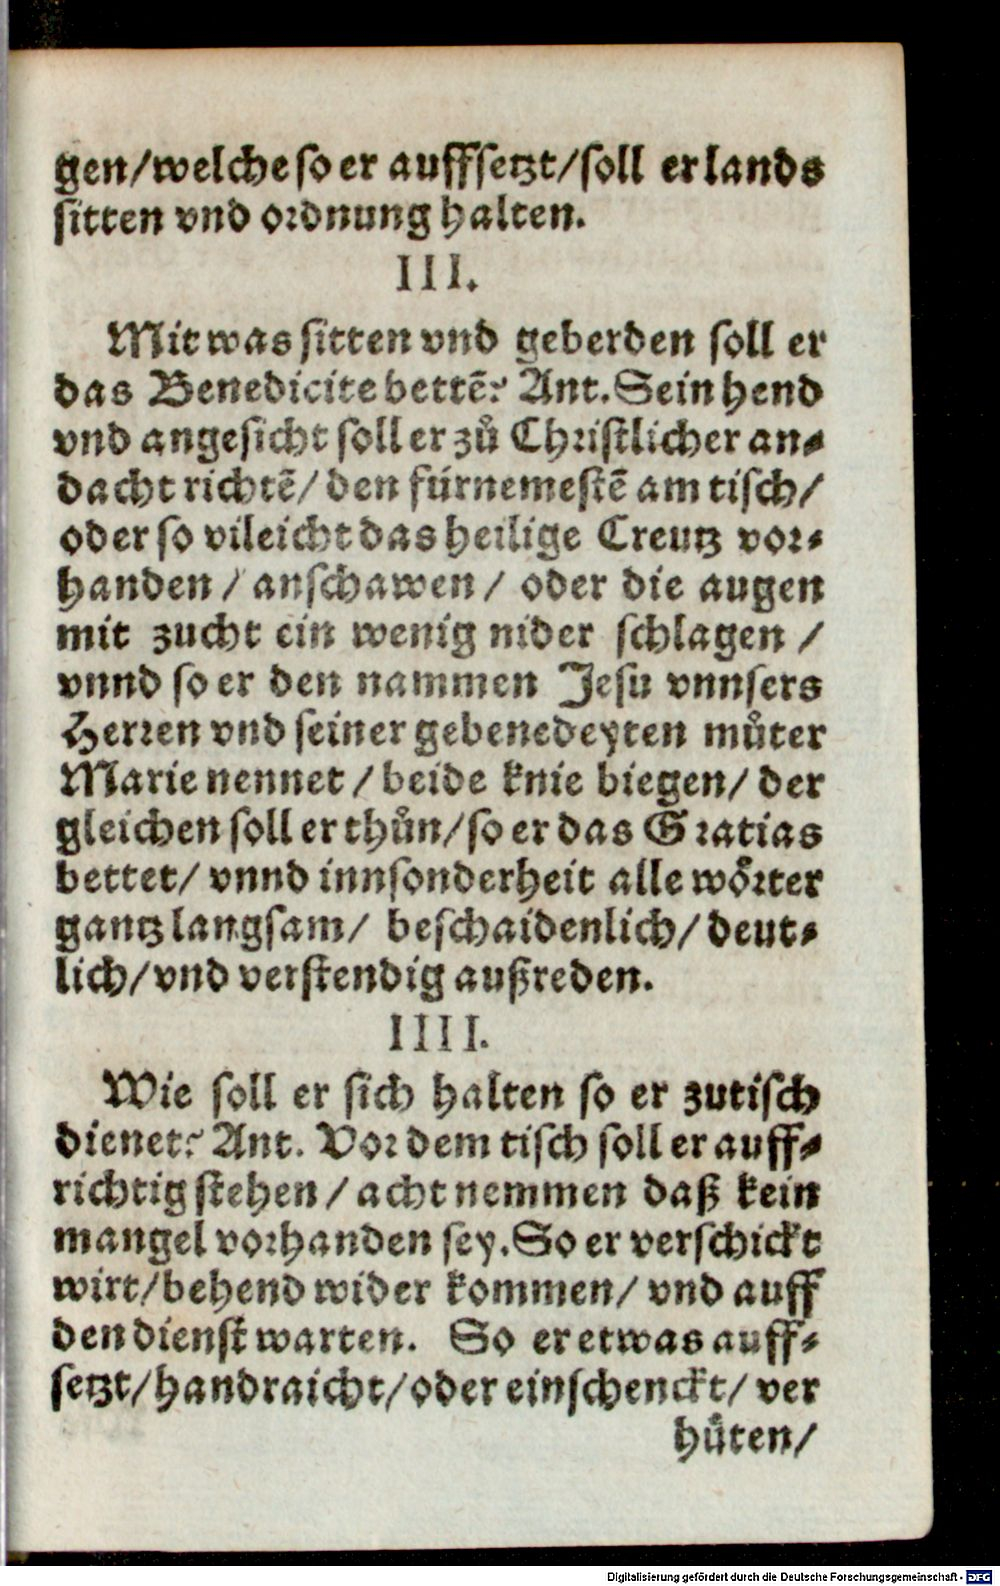 gen/welche so er auffsetzt/soll er lands
sitten vnd ordnung halten.
III.
Mit was sitten vnd geberden soll er
das Benedicite bettē? Ant. Sein hend
vnd angesicht soll er zů Christlicher an-
dacht richtē/ den fürnemestē am tisch/
oder so vileicht das heilige Creutz vor-
handen / anschawen / oder die augen
mit zucht ein wenig nider schlagen /
vnnd so er den nammen Jesu vnnsers
Herren vnd seiner gebenedeyten můter
Marie nennet / beide knie biegen/ der
gleichen soll er thůn/so er das Gratias
bettet/ vnnd innsonderheit alle wörter
gantz langsam/ beschaidenlich/ deut-
lich/vnd verstendig außreden.
IIII.
Wie soll er sich halten so er zutisch
dienet? Ant. Vor dem tisch soll er auff-
richtig stehen / acht nemmen daß kein
mangel vorhanden sey. So er verschickt
wirt/behend wider kommen/ vnd auff
den dienst warten. So er etwas auff-
setzt/handraicht/oder einschenckt/ ver
hůten/
Digitalisierung gefördert durch die Deutsche Forschungsgemeinschaft - DFG